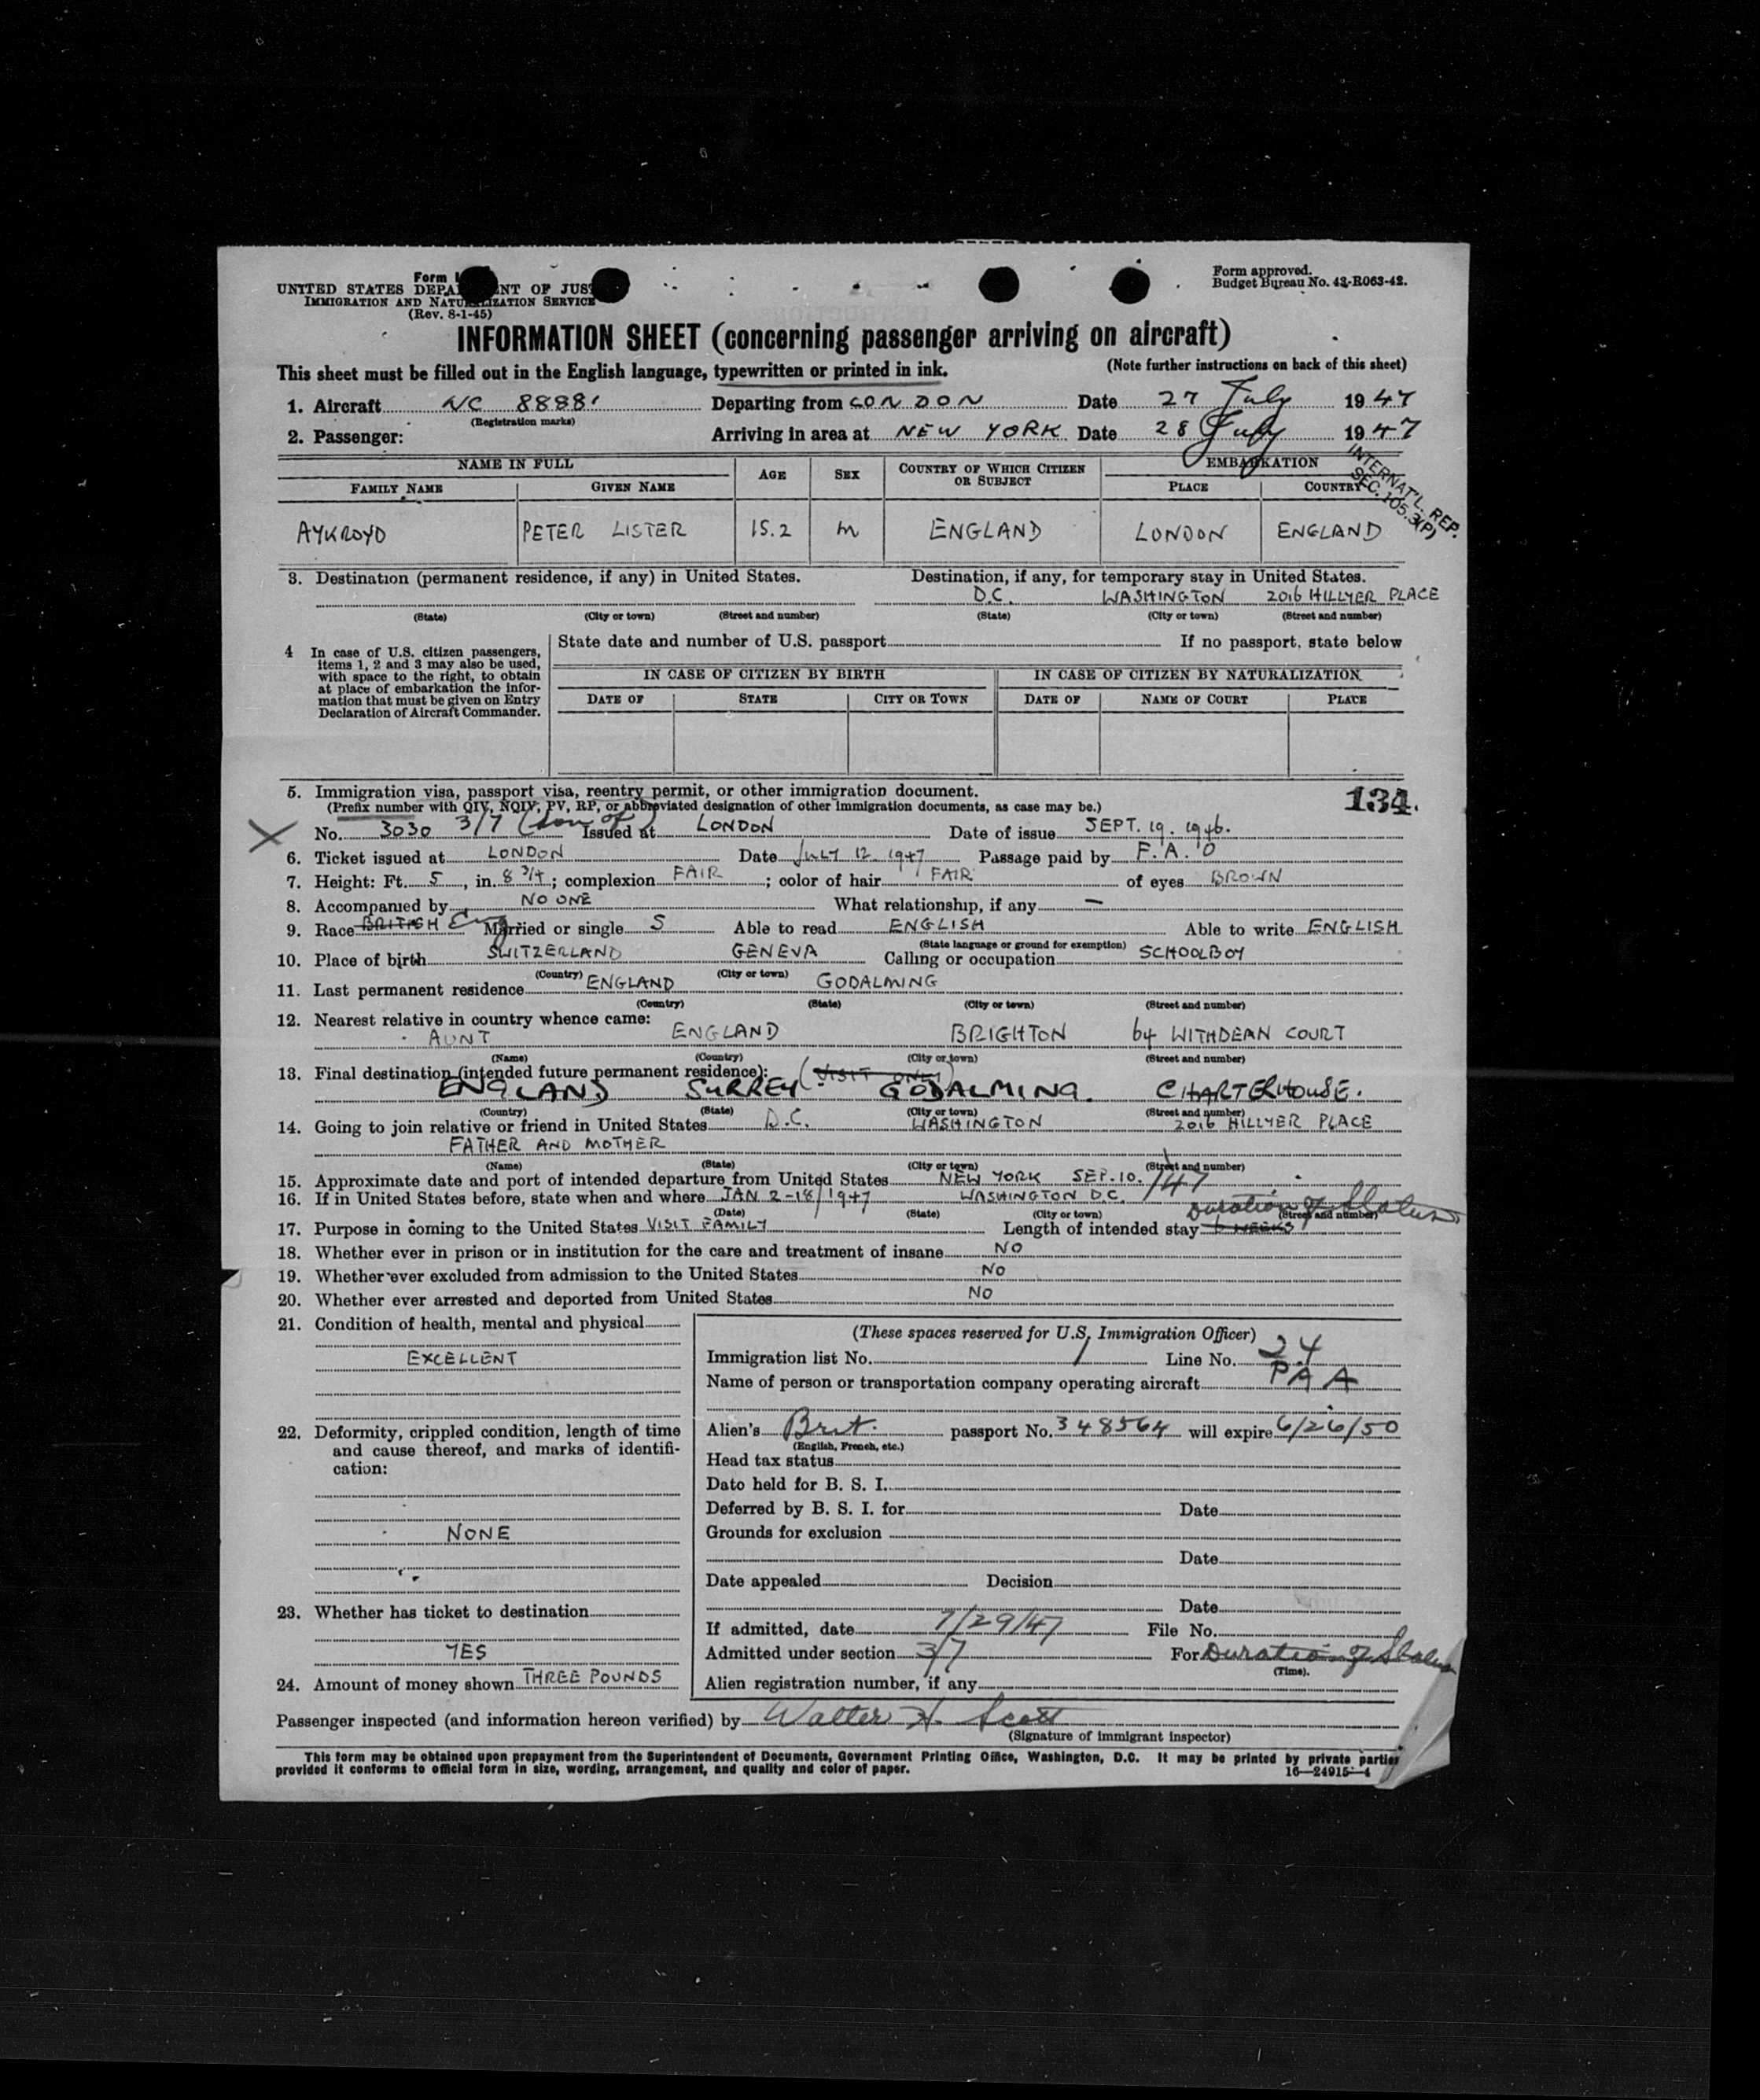 Form
UNITED STATES DEPA NT OF JUS
IMMIGRATION AND NATURALIZATION SERVICE
(Rev. 8-1-45)
Form approved.
Budget Bureau No. 43-R063-42.
INFORMATION SHEET (concerning passenger arriving on aircraft)
This sheet must be filled out in the English language, typewritten or printed in ink. (Note further instructions on back of this sheet)
1. Aircraft NC 88881 Departing from LONDON Date 27 July 1947
(Registration marks)
2. Passenger: Arriving in area at NEW YORK Date 28 July 1947
INTERNAT'L. REP.
SEC. 105.3(P)
NAME IN FULL AGE SEX COUNTRY OF WHICH CITIZEN OR SUBJECT EMBARKATION
FAMILY NAME GIVEN NAME PLACE COUNTRY
AYKROYD PETER LISTER 15.2 M ENGLAND LONDON ENGLAND
3. Destination (permanent residence, if any) in United States. Destination, if any, for temporary stay in United States.
D.C. WASHINGTON 2016 HILLYER PLACE
(State) (City or town) (Street and number) (State) (City or town) (Street and number)
4 In case of U.S. citizen passengers, items 1, 2 and 3 may also be used, with space to the right, to obtain at place of embarkation the information that must be given on Entry Declaration of Aircraft Commander.
State date and number of U.S. passport If no passport, state below
IN CASE OF CITIZEN BY BIRTH IN CASE OF CITIZEN BY NATURALIZATION
DATE OF STATE CITY OR TOWN DATE OF NAME OF COURT PLACE
5. Immigration visa, passport visa, reentry permit, or other immigration document. 134.
(Prefix number with QIV, NQIV, PV, RP, or abbreviated designation of other immigration documents, as case may be.)
No. 3030 3/7 (son of) Issued at LONDON Date of issue SEPT. 19. 1946.
6. Ticket issued at LONDON Date JULY 12 1947 Passage paid by F.A.O
7. Height: Ft. 5, in. 8 3/4; complexion FAIR; color of hair FAIR of eyes BROWN
8. Accompanied by NO ONE What relationship, if any —
9. Race BRITISH Eng Married or single S Able to read ENGLISH Able to write ENGLISH
(State language or ground for exemption)
10. Place of birth SWITZERLAND GENEVA Calling or occupation SCHOOLBOY
(Country) (City or town)
11. Last permanent residence ENGLAND GODALMING
(Country) (State) (City or town) (Street and number)
12. Nearest relative in country whence came:
AUNT ENGLAND BRIGHTON 64 WITHDEAN COURT
(Name) (Country) (City or town) (Street and number)
13. Final destination (intended future permanent residence): (VISIT ONLY)
ENGLAND SURREY GODALMING. CHARTERHOUSE.
(Country) (State) (City or town) (Street and number)
14. Going to join relative or friend in United States D.C. WASHINGTON 2016 HILLYER PLACE
FATHER AND MOTHER
(Name) (State) (City or town) (Street and number)
15. Approximate date and port of intended departure from United States NEW YORK SEP. 10. /47
16. If in United States before, state when and where JAN 2-18/1947 WASHINGTON D.C.
(Date) (State) (City or town) (Street and number)
Duration of Status
17. Purpose in coming to the United States VISIT FAMILY Length of intended stay 6 WEEKS
18. Whether ever in prison or in institution for the care and treatment of insane NO
19. Whether ever excluded from admission to the United States NO
20. Whether ever arrested and deported from United States NO
21. Condition of health, mental and physical
EXCELLENT
22. Deformity, crippled condition, length of time and cause thereof, and marks of identification:
NONE
23. Whether has ticket to destination
YES
24. Amount of money shown THREE POUNDS
(These spaces reserved for U.S. Immigration Officer)
Immigration list No. 1 Line No. 24
Name of person or transportation company operating aircraft PAA
Alien's Brit. passport No. 348564 will expire 6/26/50
(English, French, etc.)
Head tax status
Date held for B. S. I.
Deferred by B. S. I. for Date
Grounds for exclusion
Date
Date appealed Decision
Date
If admitted, date 7/29/47 File No.
Admitted under section 3/7 For Duration of Status
(Time).
Alien registration number, if any
Passenger inspected (and information hereon verified) by Walter H. Scott
(Signature of immigrant inspector)
This form may be obtained upon prepayment from the Superintendent of Documents, Government Printing Office, Washington, D.C. It may be printed by private parties
provided it conforms to official form in size, wording, arrangement, and quality and color of paper. 16—24915-4